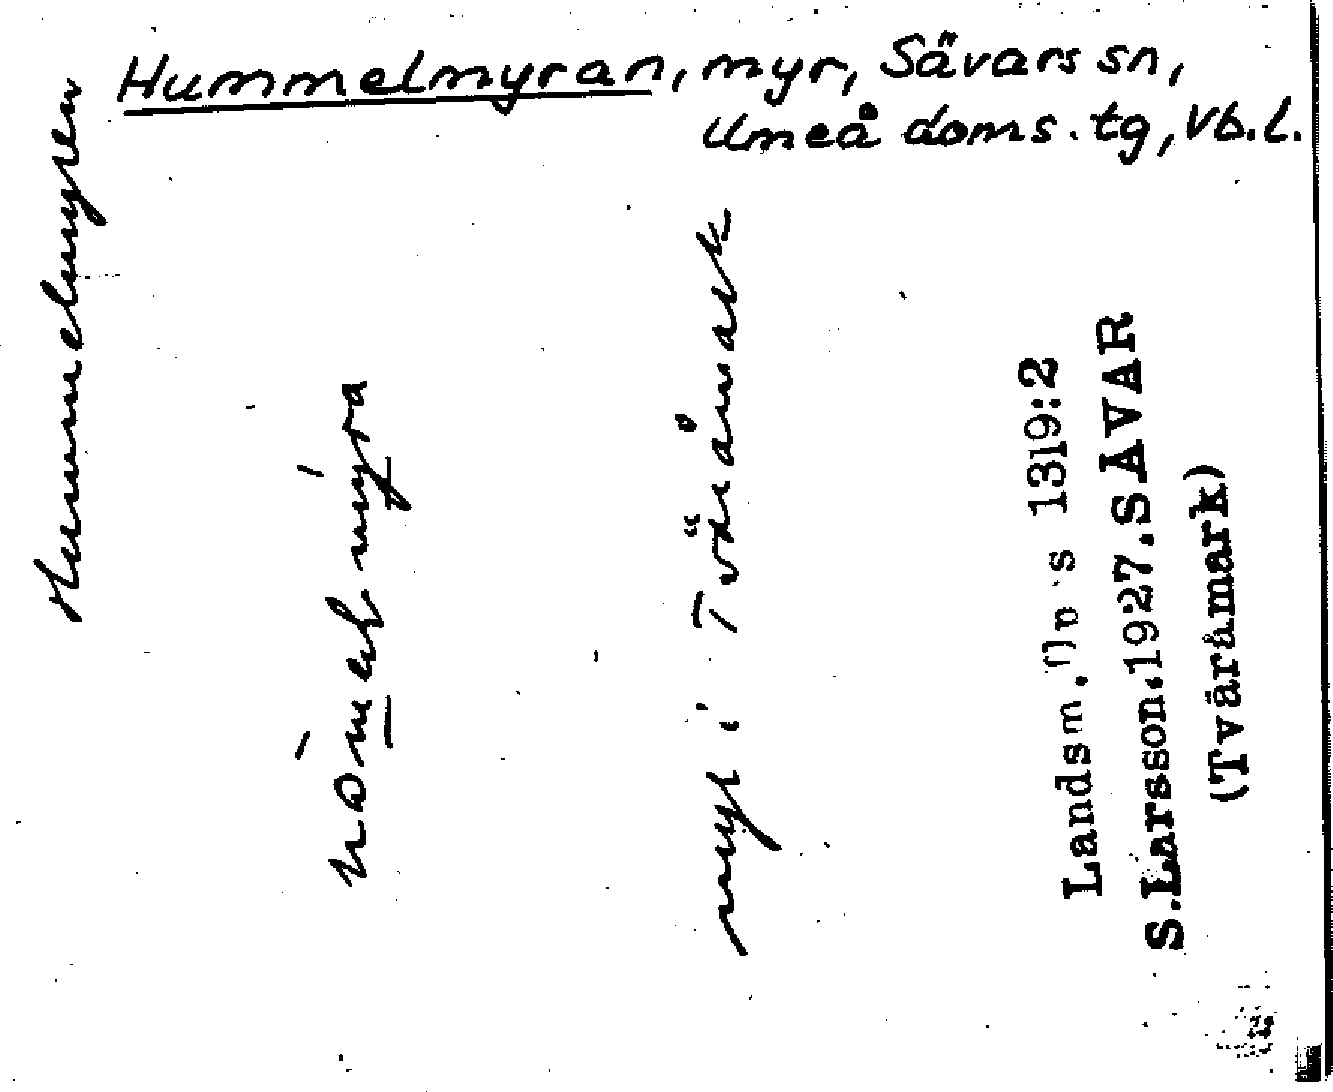 Hummelmyran, myr, Sävars sn,
Umeå doms. tg, Vb. l.
Hummelmyren
myr i Tväråmark
Landsm. 1319:2
S.Larsson.1927.SÄVAR
(Tväråmark)